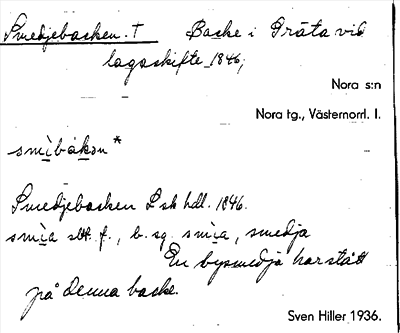 Smedjebacken. † Backe i Gräta vid
lagaskifte 1846;
Nora s:n
Nora tg., Västernorrl. l.
smìbàkən *
Smedjebacken L sk hdl. 1846.
smìa sbt. f., b. sg. smìa, smedja
En bysmedja har stått
på denna backe.
Sven Hiller 1936.